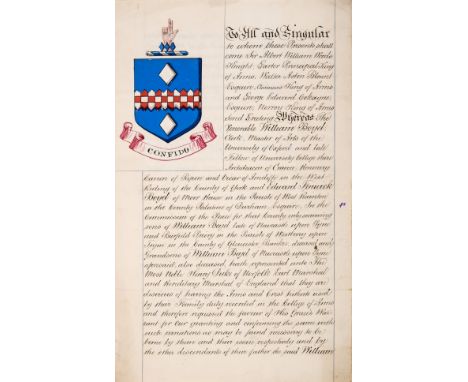 To All and Singular
to whom these Presents shall
come Sir Albert William Woods
Knight Garter Principal King
of Arms, Walter Aston Blount
Esquire, Clarenceux King of Arms
and George Edward Cokayne
Esquire, Norroy King of Arms
Send Greeting Whereas The
Venerable William Boyd
Clerk, Master of Arts of the
University of Oxford and late
Fellow of University College there
Archdeacon of Craven Honorary
CONFIDO
Canon of Ripon and Vicar of Arncliffe in the West
Riding of the County of York and Edward Fenwick
Boyd of Moor House in the Parish of West Rainton
in the County Palatine of Durham Esquire, in the
Commission of the Peace for that County only surviving
sons of William Boyd late of Newcastle upon Tyne
and Burfield Priory in the Parish of Westbury upon
Trym in the County of Gloucester Banker deceased and
Grandsons of William Boyd of Newcastle upon Tyne
aforesaid also deceased hath represented unto The
Most Noble Henry Duke of Norfolk Earl Marshal
and Hereditary Marshal of England that they are
desirous of having the Arms and Crest hitherto used
by their Family duly recorded in the College of Arms
and therefore requested the favour of His Grace's War
rant for Our granting and confirming the same with
such variations as may be found necessary to be
borne by them and their issue respectively and by
the other descendants of their father the said William